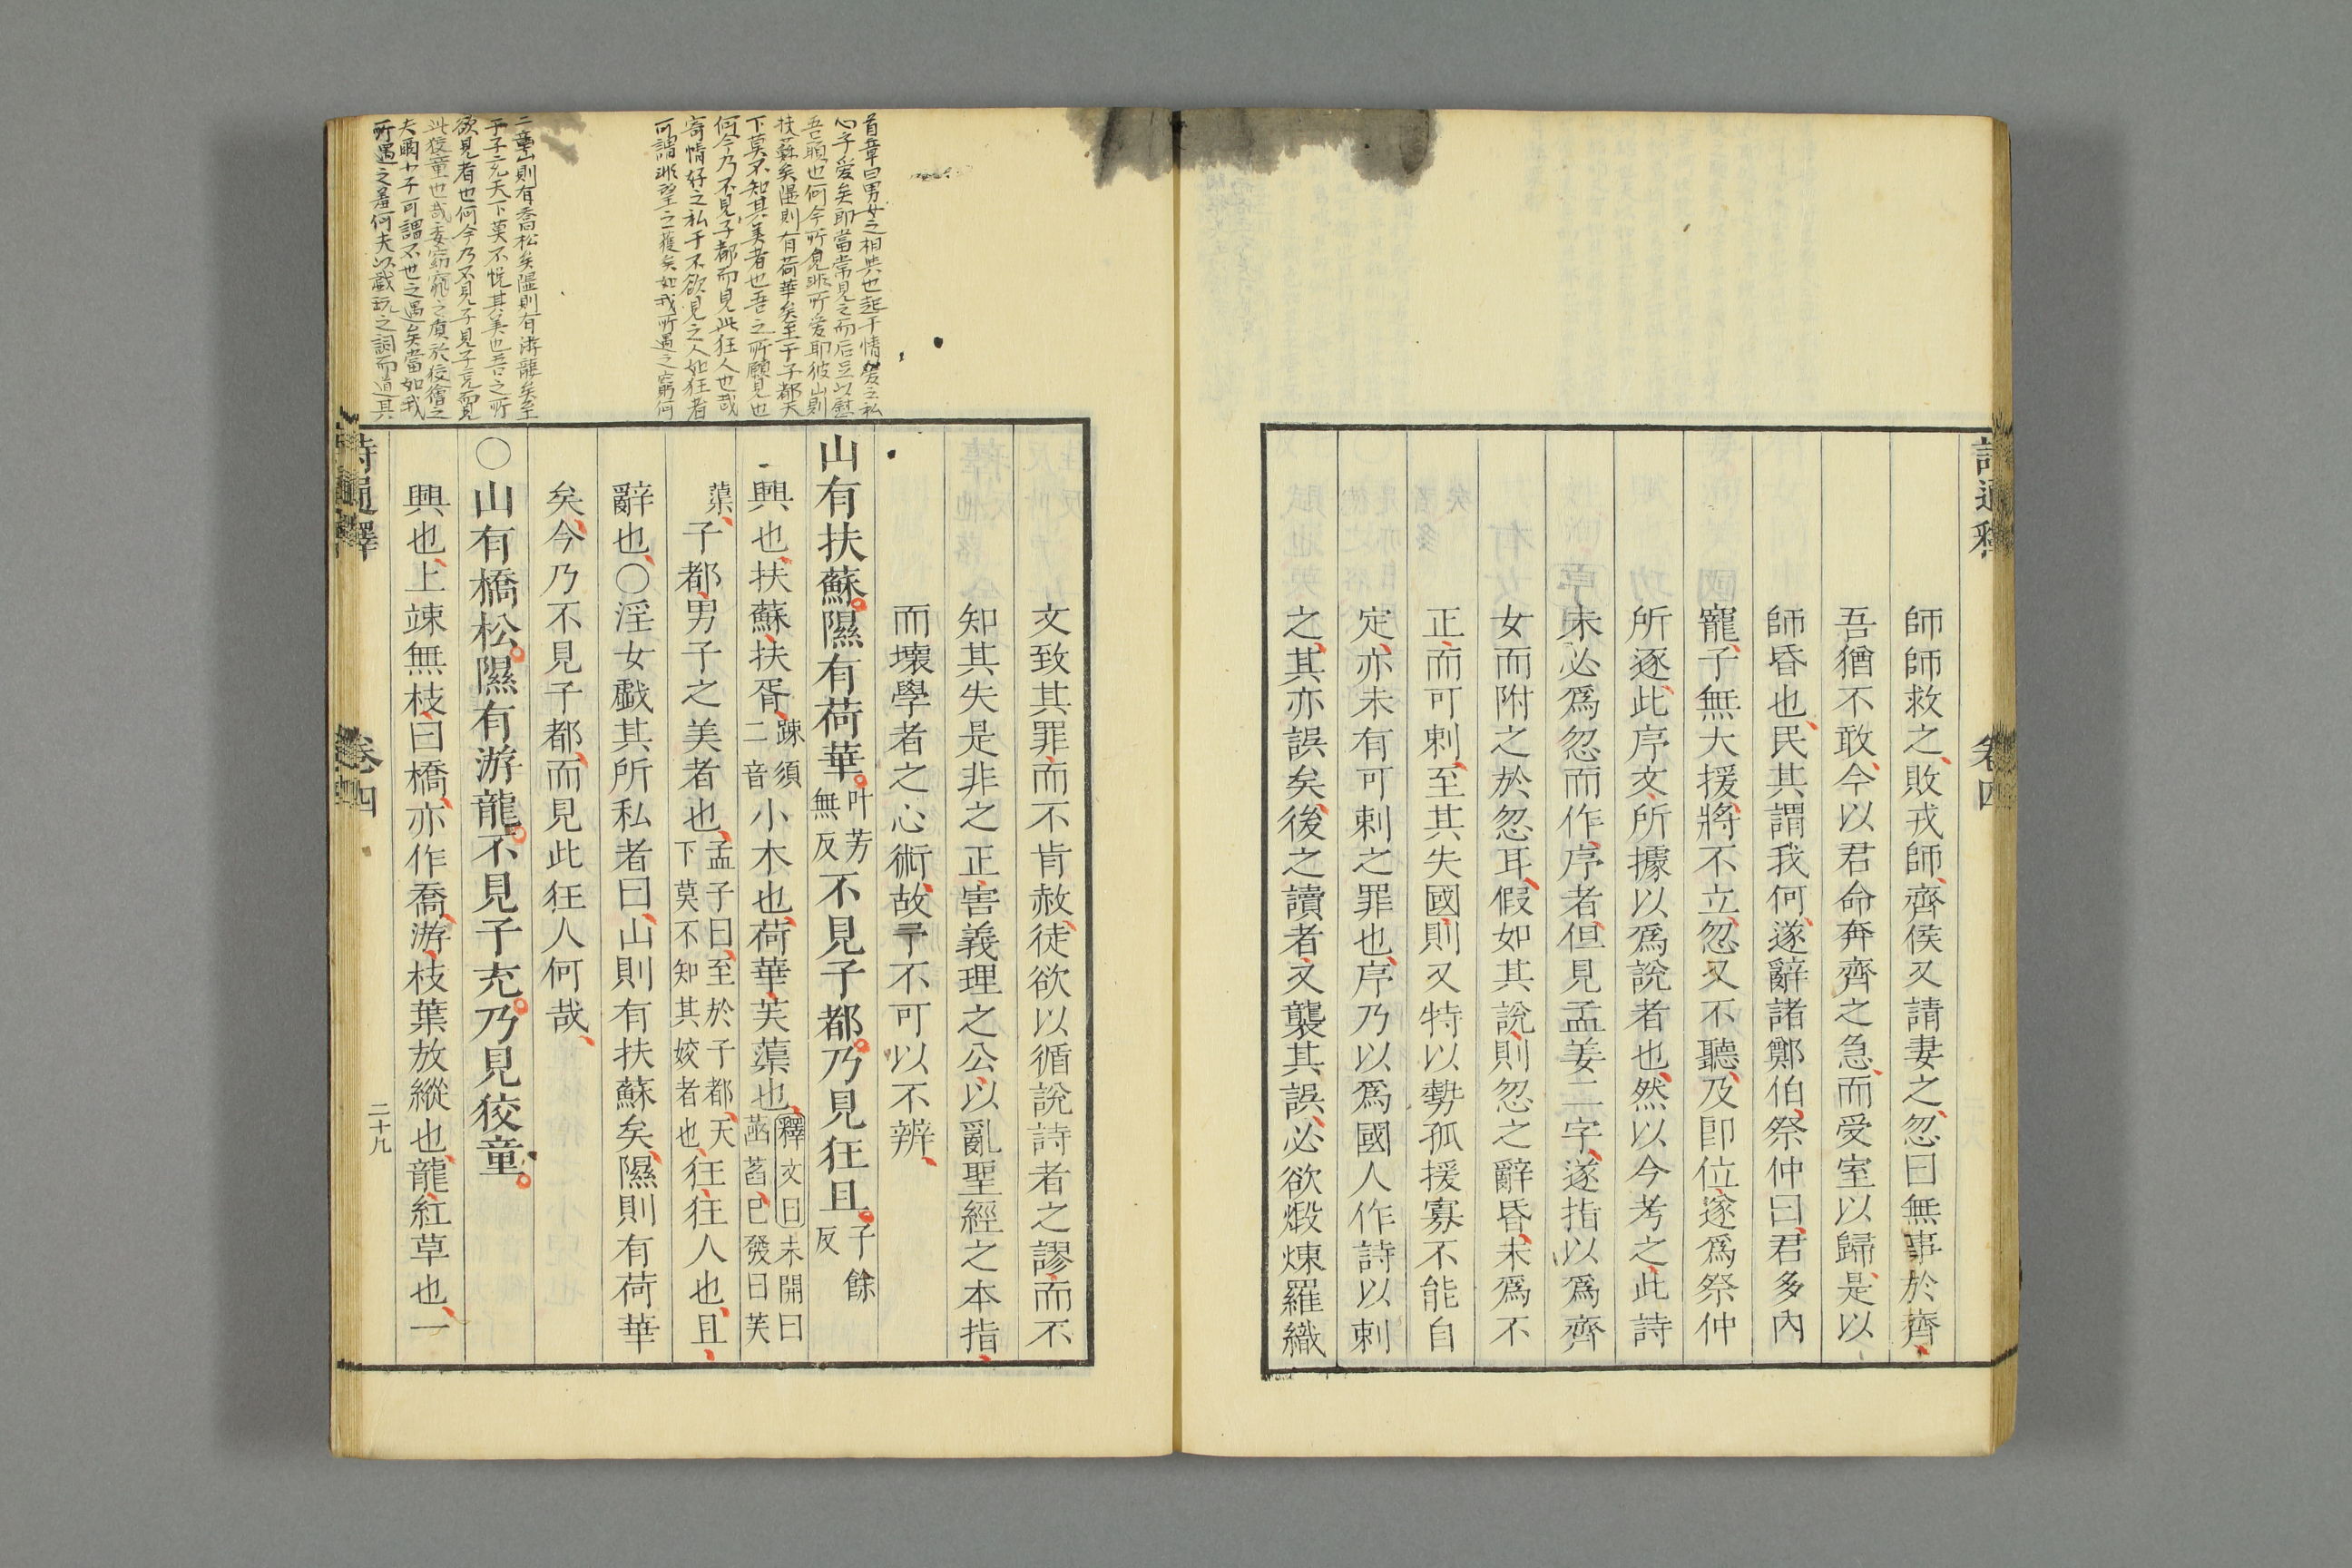 詩通釋
卷四
師師救之敗戎師齊侯又請妻之忽曰無事於齊
吾猶不敢今以君命奔齊之急而受室以歸是以
師昏也民其謂我何遂辭諸鄭伯祭仲曰君多內
寵子無大援將不立忽又不聽及即位遂爲祭仲
所逐此序文所據以爲說者也然以今考之此詩
未必爲忽而作序者但見孟姜二字遂指以爲齊
女而附之於忽耳假如其說則忽之辭昏未爲不
正而可刺至其失國則又特以勢孤援寡不能自
定亦未有可刺之罪也序乃以爲國人作詩以刺
之其亦誤矣後之讀者又襲其誤必欲煅煉羅織
文致其罪而不肯赦徒欲以循說詩者之謬而不
知其失是非之正害義理之公以亂聖經之本指
而壞學者之心術故予不可以不辨
山有扶蘇隰有荷華叶芳無反不見子都乃見狂且子餘反
興也扶蘇扶胥踈須二音小木也荷華芙蕖也釋文曰未開曰菡萏已發曰芙
蕖子都男子之美者也孟子曰至於子都天下莫不知其姣者也狂狂人也且
辭也○淫女戲其所私者曰山則有扶蘇矣隰則有荷華
矣今乃不見子都而見此狂人何哉
○山有橋松隰有游龍不見子充乃見狡童
興也上竦無枝曰橋亦作喬游枝葉放縱也龍紅草也一
詩通釋
卷四
二十九
首章曰男女之相與也起于情愛之私
心乎愛矣即當常見之而后足以慰
吾願也何今所見非所愛耶彼山則
扶蘇矣隰則有荷華矣至于子都天
下莫不知其美者也吾之所願見也
何今乃不見子都而見此狂人也哉
寄情好之私于不欲見之人如狂者
可謂非望之獲矣如我所遇之窮何
二章山則有喬松矣隰則有游龍矣至
于子充天下莫不悅其美也吾之所
欲見者也何今乃不見子見子充而見
此狡童也哉委窈窕之質於狡獪之
夫爾女子可謂不世之遇矣當如我
所遇之羞何夫以戲玩之詞而道其